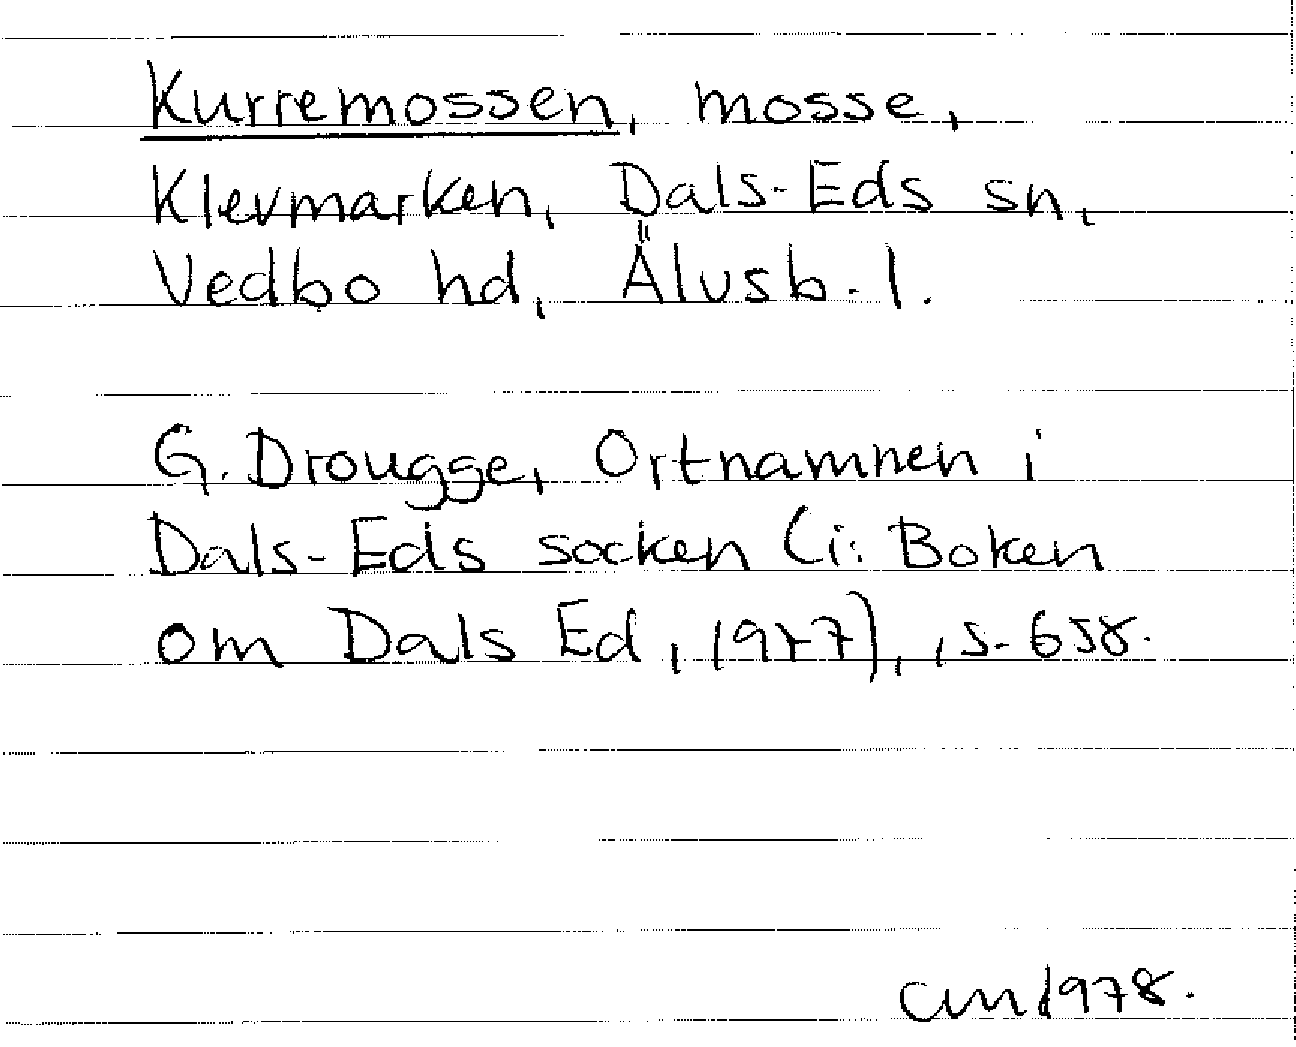 Kurremossen, mosse,
Klevmarken, Dals-Eds sn,
Vedbo hd, Älvsb. l.
G. Drougge, Ortnamnen i
Dals-Eds socken (i: Boken
om Dals Ed, 1977), s. 658.
cm 1978.